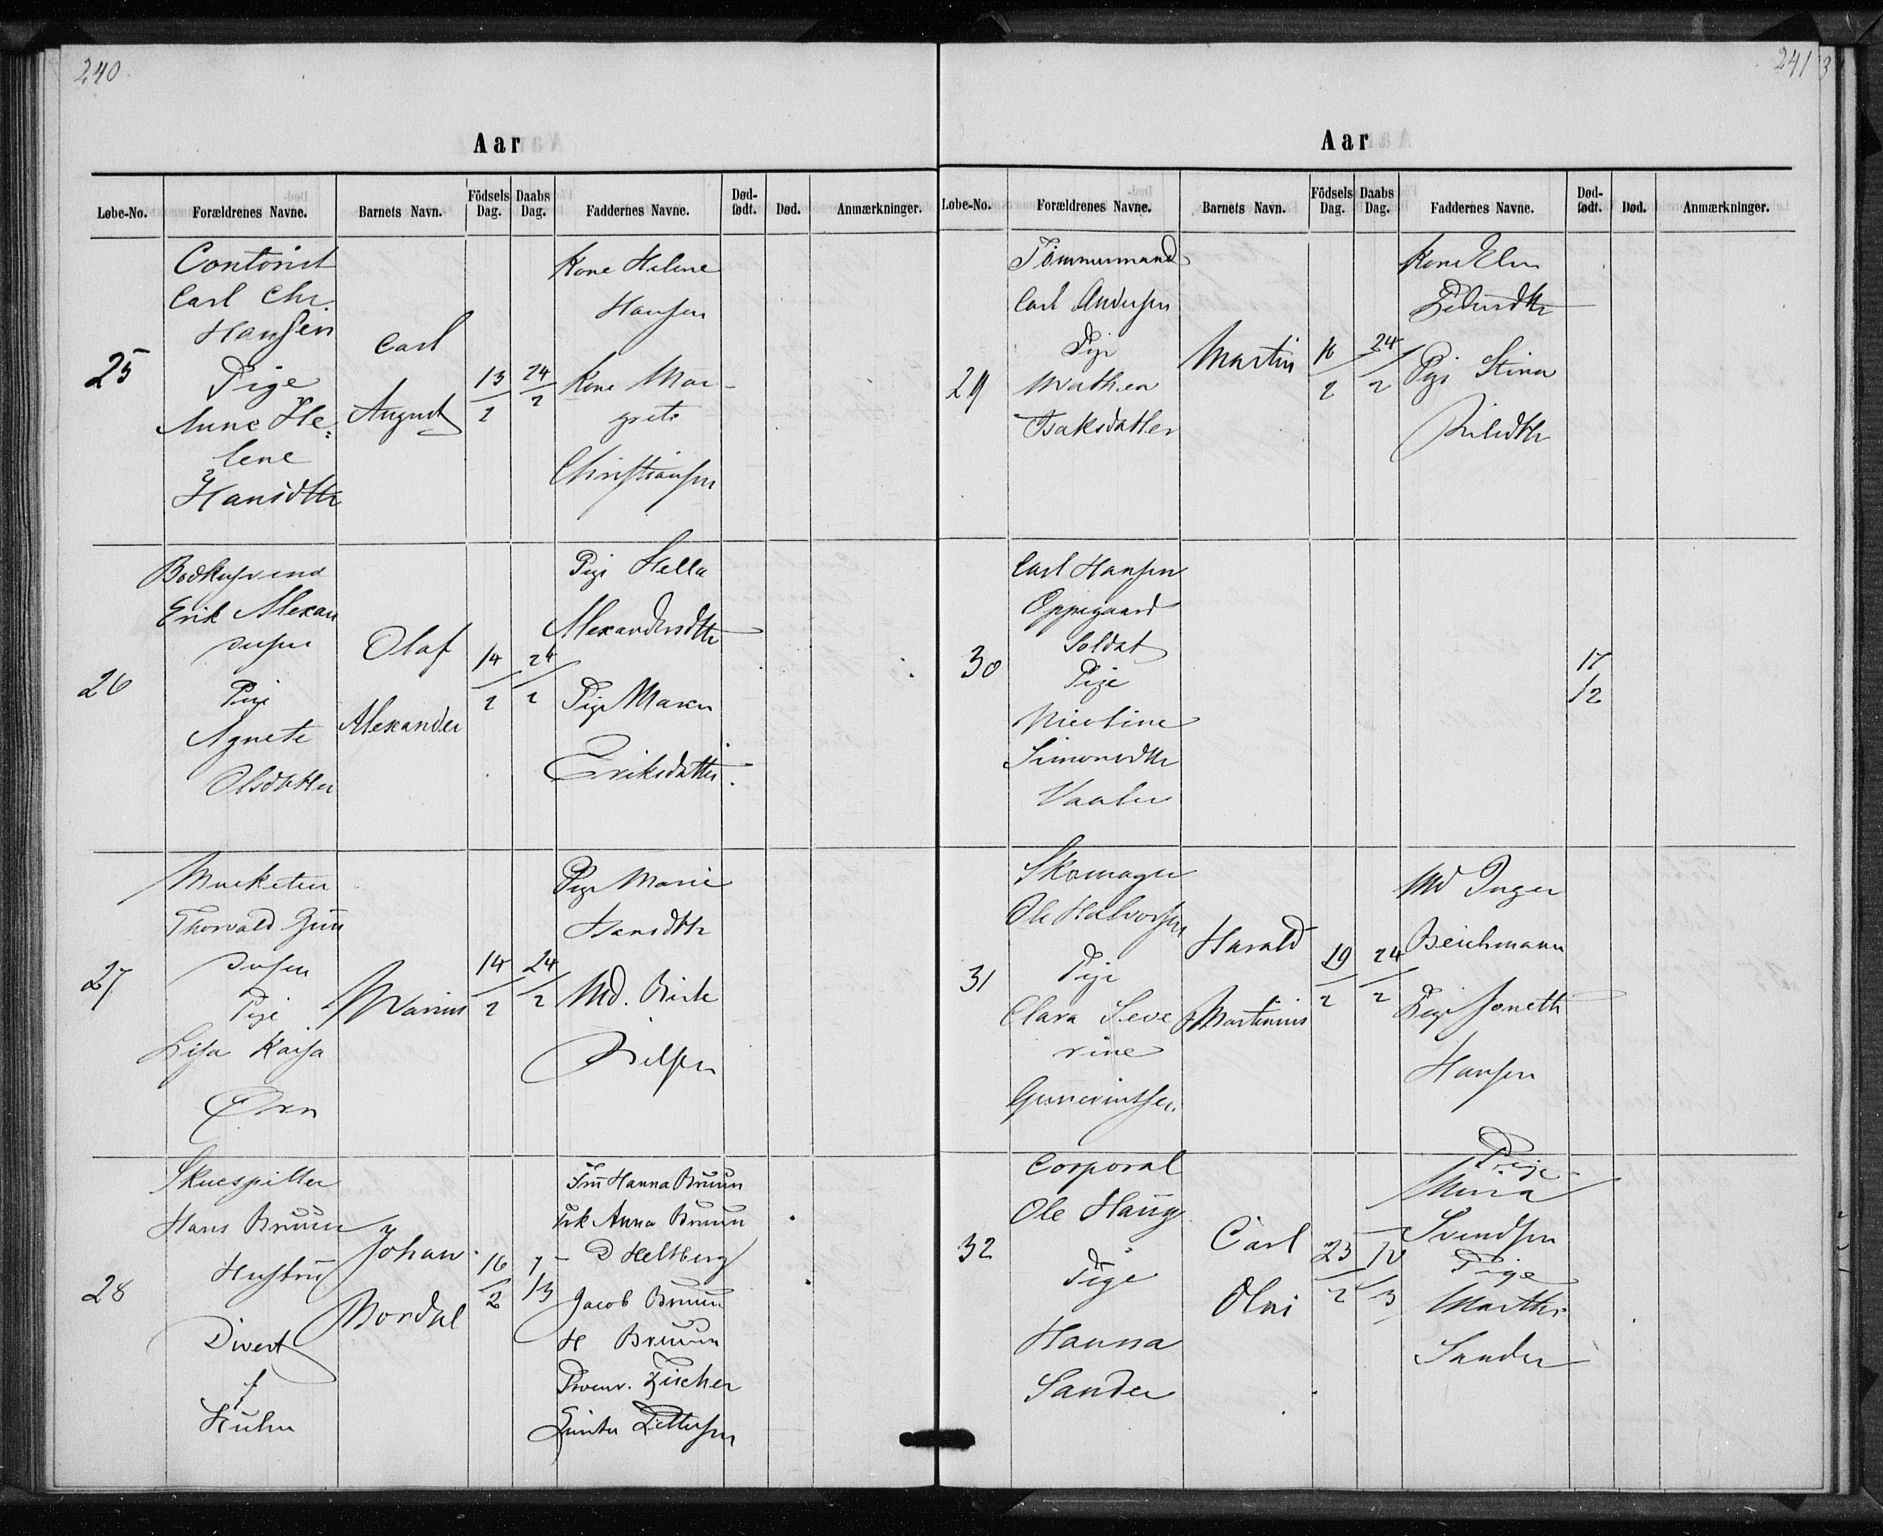 240
Aar
Løbe-No. Forældrenes Navne. Barnets Navn. Födsels Dag. Daabs Dag. Faddernes Navne. Død-født. Død. Anmærkninger.
25
Contorist
Carl Chr.
Hansen
Pige
Anne He=
lene
Hansdttr
Carl
August
13/2
24/2
Kone Helene
Hansen
Kone Mar-
grete
Christiansen
26
Erik Alexan
dersen
Pige
Agnete
Olsdatter
Olaf
Alexander
14/2
24/2
Pige Hella
Alexandersdttr
Pige Maren
Eriksdatter.
27
Musketeer
Thorvald Gun
dersen
Pige
Lisa Kaisa
Marius
14/2
24/2
Pige Marie
Hansdttr
Md. Birte
Nilsen
28
Skuespiller
Hans Bruun
Hustru
Divert
f
Kuhn
Johan
Nordal
16/2
7/3
Fru Hanna Bruun
Frk Anna Bruun
D Heltberg
Jacob Bruun
H Bruun
Günther Pettersen
241
Aar
Løbe-No. Forældrenes Navne. Barnets Navn. Födsels Dag. Daabs Dag. Faddernes Navne. Død-født. Død. Anmærkninger.
29
Tömmermand
Carl Andersen
Pige
Mathea
Isaksdatter
Martin
16/2
24/2
Kone Elen
Pedersdttr
Pige Stina
Nilsdttr
30
Carl Hansen
Oppegaard
Soldat
Pige
Nicoline
Simonsdttr
Vaaler
17
12
31
Skomager
Ole Halvorsen
Pige
Clara Seve
rine
Harald
Martinius
19/2
24/2
Md Inger
Beichmann
Pige Jonette
Hansen
32
Corporal
Ole Haug
Pige
Hanna
Sander
Carl
Olai
23/2
10/3
Pige
Mina
Svendsen
Pige
Marthe
Sander